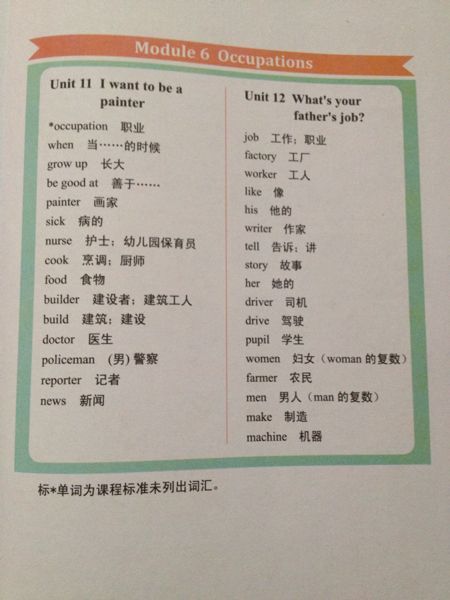 Module 6 Occupations
Unit 11 I want to be a
painter
*occupation 职业
when 当……的时候
grow up 长大
be good at 善于……
painter 画家
sick 病的
nurse 护士；幼儿园保育员
cook 烹调；厨师
food 食物
builder 建设者；建筑工人
build 建筑；建设
doctor 医生
policeman (男) 警察
reporter 记者
news 新闻
Unit 12 What's your
father's job?
job 工作；职业
factory 工厂
worker 工人
like 像
his 他的
writer 作家
tell 告诉；讲
story 故事
her 她的
driver 司机
drive 驾驶
pupil 学生
women 妇女（woman 的复数）
farmer 农民
men 男人（man 的复数）
make 制造
machine 机器
标*单词为课程标准未列出词汇。